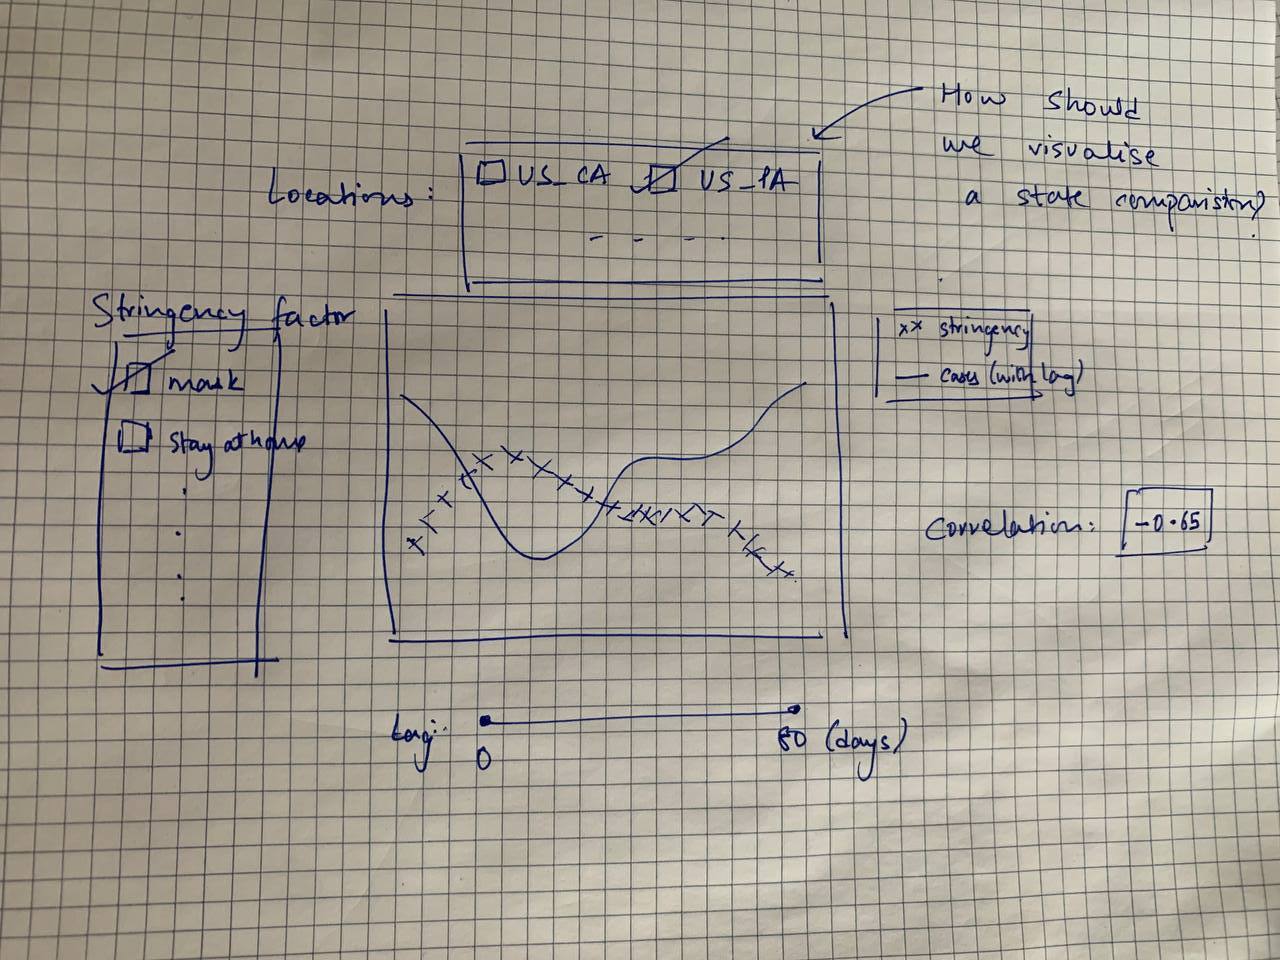 How should
we visualise
a state comparision?
Locations:
US_CA US_PA
Stringency factor
mask
Stay at home
xx stringency
— cases (with lag)
Correlation: -0.65
Lag:
0
(days)